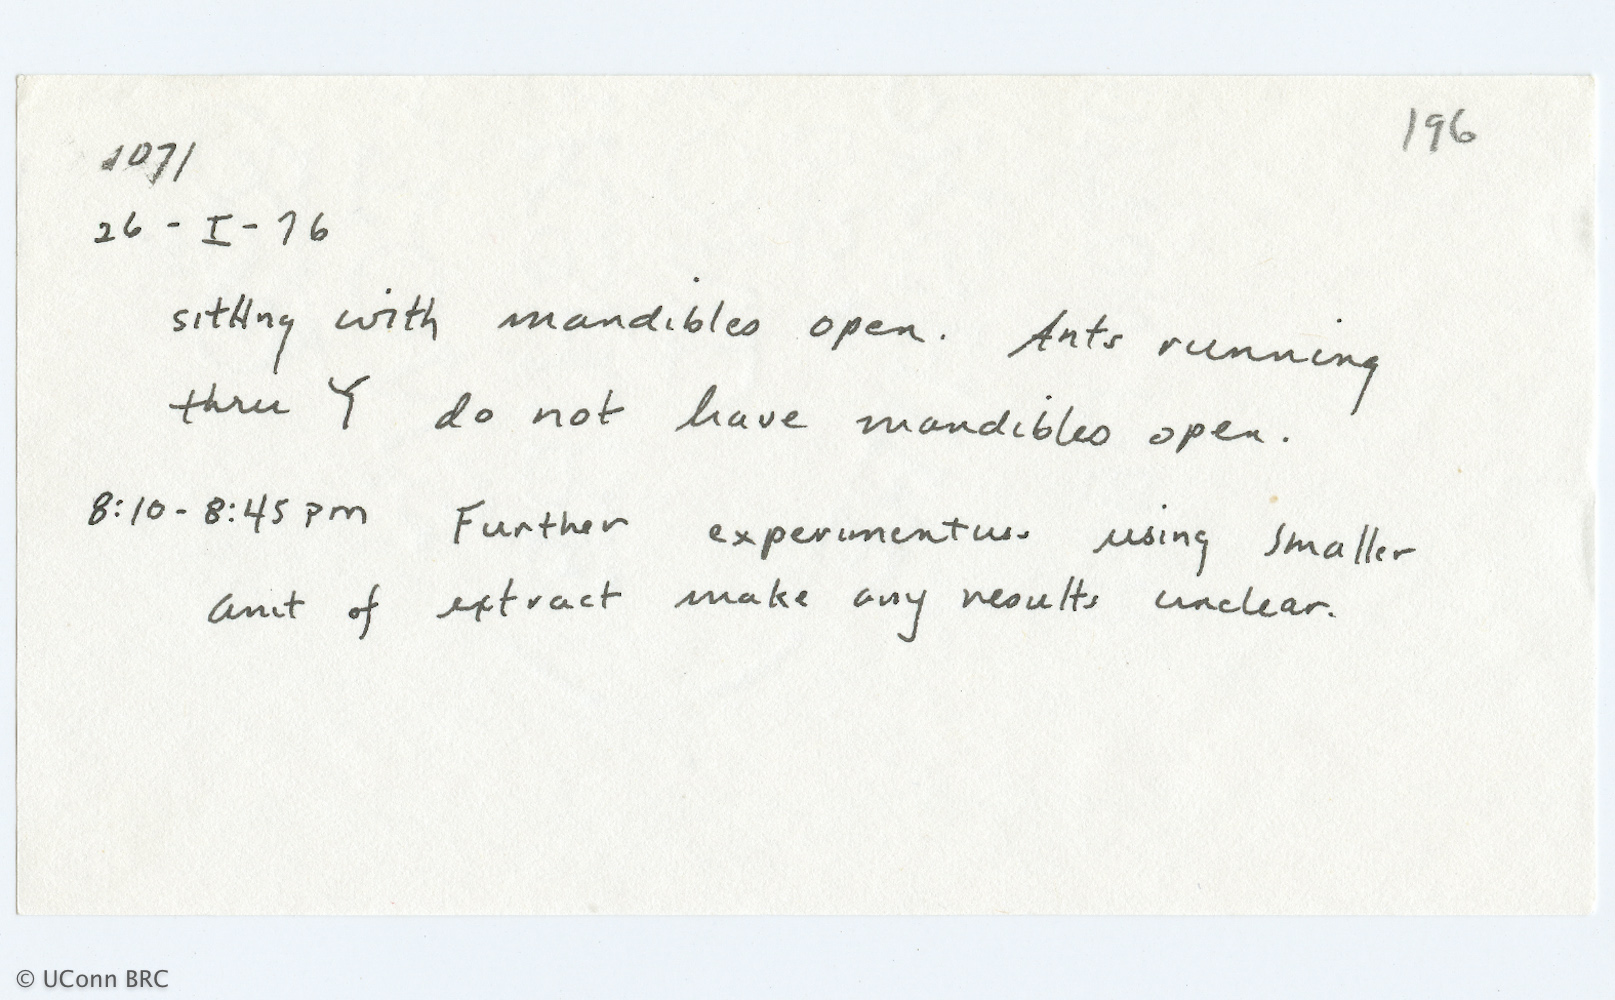 196
1071
26 - I - 76
sitting with mandibles open. Ants running
thru Y do not have mandibles open.
8:10 - 8:45 pm Further using smaller
amt of extract make any results unclear.
© UConn BRC